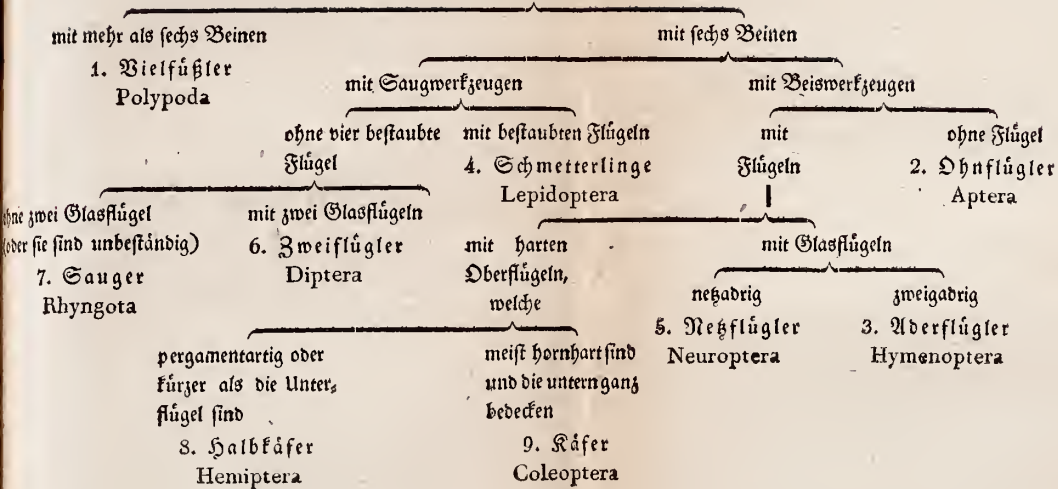 mit mehr als sechs Beinen
1. Vielfüßler
Polypoda
mit sechs Beinen
mit Saugwerkzeugen
mit Beiswerkzeugen
ohne vier bestaubte
Flügel
mit bestaubten Flügeln
4. Schmetterlinge
Lepidoptera
mit
Flügeln
ohne Flügel
2. Ohnflügler
Aptera
ohne zwei Glasflügel
(oder sie sind unbeständig)
7. Sauger
Rhyngota
mit zwei Glasflügeln
6. Zweiflügler
Diptera
mit harten
Oberflügeln,
welche
mit Glasflügeln
netzadrig
5. Netzflügler
Neuroptera
zweigadrig
3. Aderflügler
Hymenoptera
pergamentartig oder
kürzer als die Unter-
flügel sind
8. Halbkäfer
Hemiptera
meist hornhart sind
und die untern ganz
bedecken
9. Käfer
Coleoptera